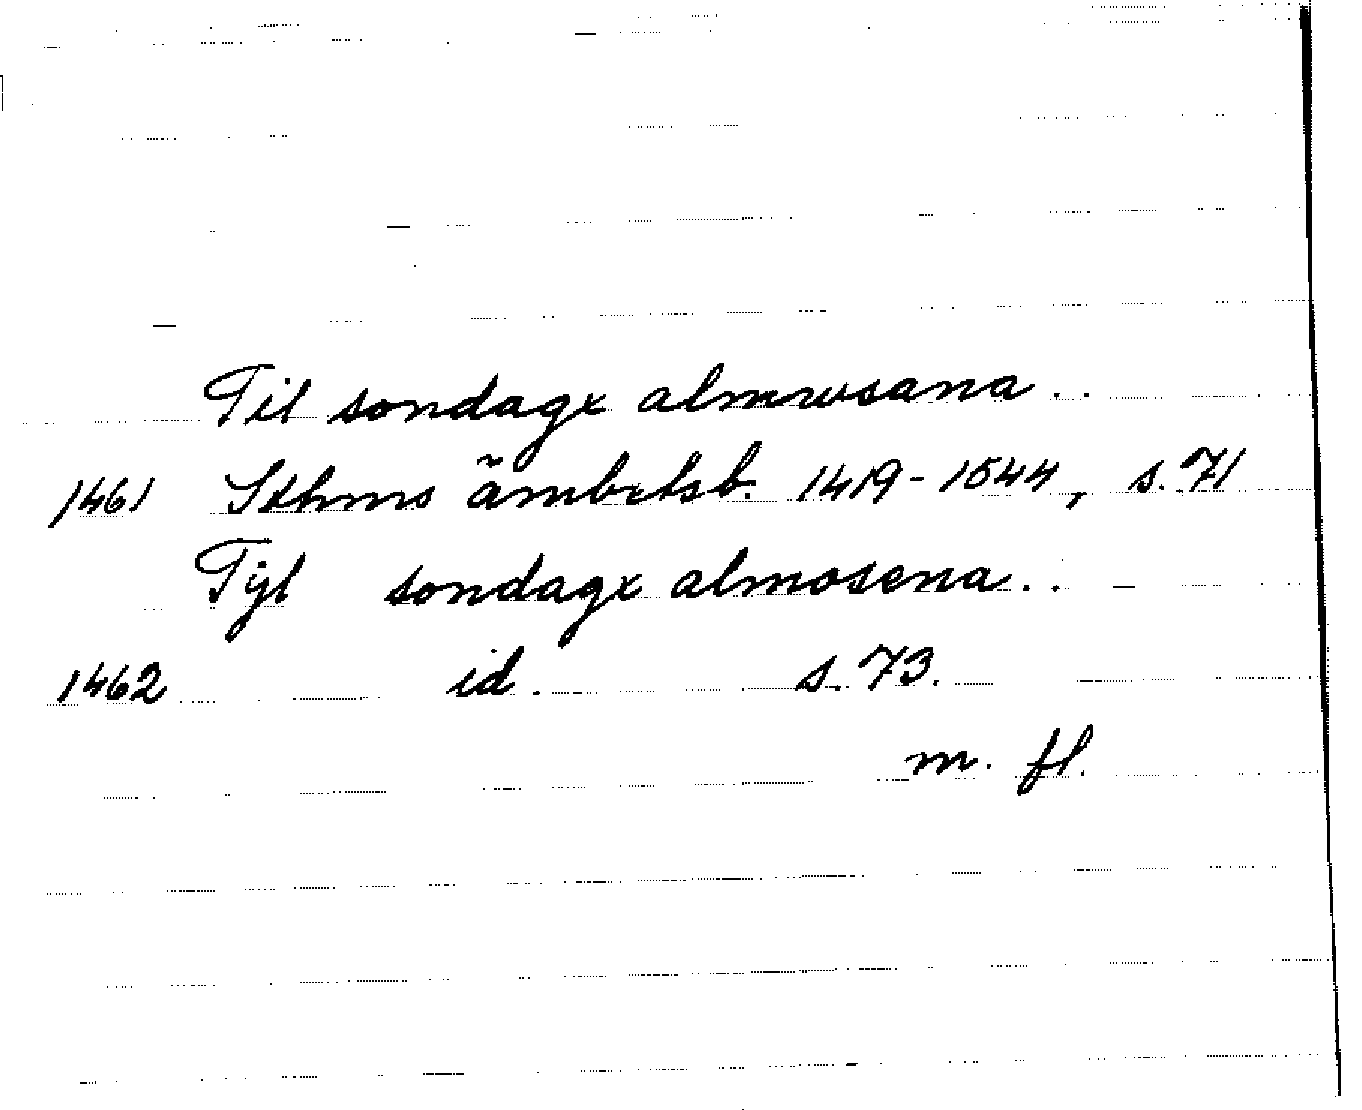 Til sondagx almwsana ..
1461 Sthms ämbetsb. 1419-1544, s. 71
Tÿl sondagx almosena ..
1462 id. s. 73.
m. fl.